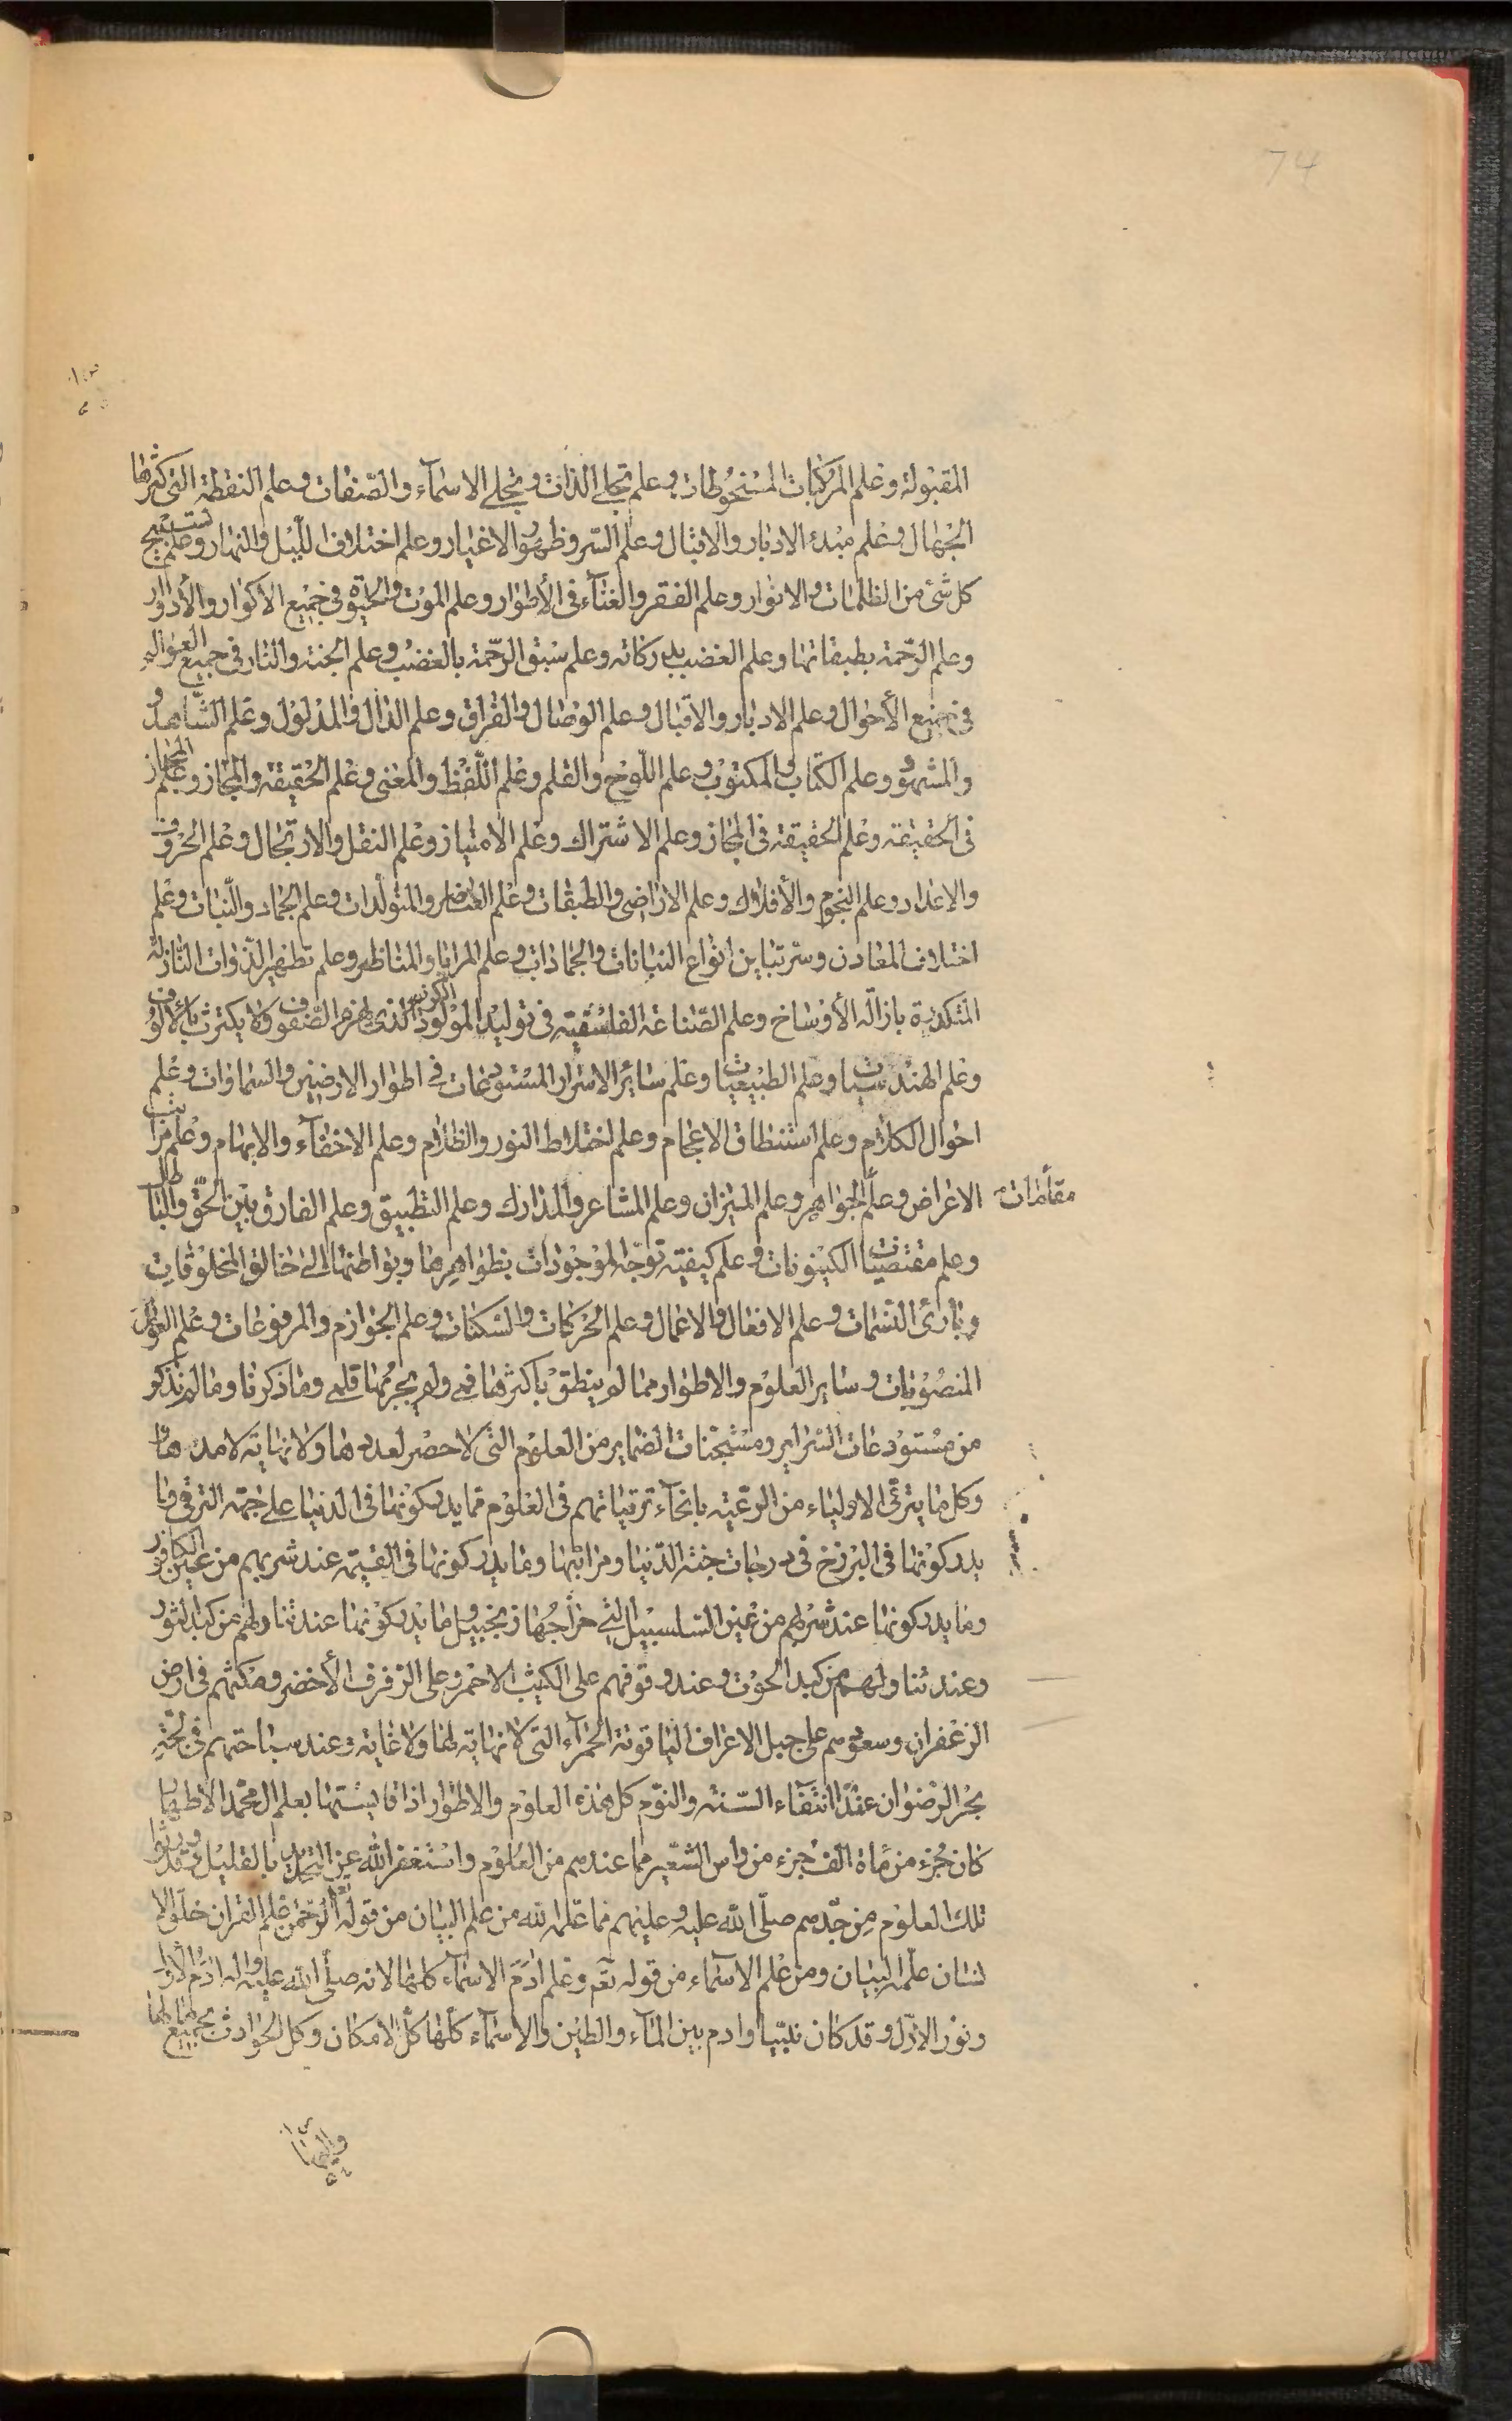 74
المقبولة وعلم المركبات المنحوطات وعلم تجلي الذات وتجلي الاسماء والصفات وعلم النقطة التي كثرها
الجهال وعلم مبدء الادبار والاقبال وعلم السر وظهور الاغيار وعلم اختلاف الليل والنهار وعلم تسبيح
كل شئ من الظلمات والانوار وعلم الفقر والغناء في الأطوار وعلم الموت والحيوة في جميع الاكوار والأدوار
وعلم الرحمة بطبقاتها وعلم الغضب بدركاته وعلم سبق الرحمة بالغضب وعلم الجنة والنار في جميع العوالم
في جميع الأحوال وعلم الادبار والاقبال وعلم الوصال والفراق وعلم الدال والمدلول وعلم الشاهد
والمشهود وعلم الكتاب والمكتوب وعلم اللوح والقلم وعلم اللفظ والمعنى وعلم الحقيقة والمجاز وعلم المجاز
في الحقيقة وعلم الحقيقة في المجاز وعلم الاشتراك وعلم الامتياز وعلم النقل والارتجال وعلم الحروف
والاعداد وعلم النجوم والأفلاك وعلم الاراضي والطبقات وعلم العناصر والمتولدات وعلم الجماد والنبات وعلم
اختلاف المعادن وسر تباين انواع النباتات والجمادات وعلم المرايا والمناظر وعلم تطهير الذوات النازلة
المتكدرة بازالة الأوساخ وعلم الصناعة الفلسفية في توليد المولود الكريم الذي يهزم الصفوف ولا يكترث بالالوف
وعلم الهندسيات وعلم الطبيعيات وعلم ساير الاسرار المستودعات في اطوار الارضين والسماوات وعلم
احوال الكلام وعلم استنطاق الاعجام وعلم اختلاط النور والظلام وعلم الاخفاء والابهام وعلم مراتب
مقامات الاعراض وعلم الجواهر وعلم الميزان وعلم المشاعر والمدارك وعلم التطبيق وعلم الفارق بين الحق والباطل
وعلم مقتضيات الكينونات وعلم كيفية توجه الموجودات بظواهرها وبواطنها الى خالق المخلوقات
وبارئ النسمات وعلم الافعال والاعمال وعلم الحركات والسكنات وعلم الجوازم والمرفوعات وعلم العوامل
المنصوبات وساير العلوم والاطوار مما لم ينطق باكثرها فمي ولم يجر بها قلمي وما ذكرنا وما لم نذكر
من مستودعات السراير ومستجنات الضماير من العلوم التي لا حصر لعددها ولا نهاية لامدها
وكل ما يترقى الاولياء من الرعية بانحاء ترقياتهم في العلوم مما يدركونها في الدنيا على جهة الترقي وما
يدركونها في البرزخ في درجات جنة الدنيا ومراتبها وما يدركونها في القيمة عند شربهم من عين الكافور
وما يدركونها عند شربهم من عين السلسبيل التي مزاجها زنجبيل وما يدركونها عند تناولهم من كبد الثور
وعند تناولهم من كبد الحوت وعند وقوفهم على الكثيب الاحمر وعلى الرفرف الأخضر ومكثهم في ارض
الزعفران وسعيهم على جبل الاعراف الياقوتة الحمراء التي لا نهاية لها ولا غاية وعند سباحتهم في لجة
بحر الرضوان عند انتفاء السنة والنوم كل هذه العلوم والاطوار اذا قايستها بعلم ال محمد الاطهار
كان جزء من مأة الف جزء من راس الشعير مما عندهم من العلوم واستغفر الله عن التحديد بالقليل وقد ورثوا
تلك العلوم من جدهم صلى الله عليه وعليهم مما علمه الله من علم البيان من قوله تعالى الرحمن علم القران خلق الا
نسان علمه البيان ومن علم الاسماء من قوله تعم وعلم ادم الاسماء كلها لانه صلى الله عليه واله ادم الاول
ونور الازل وقد كان نبيا وادم بين الماء والطين والاسماء كلها كل الامكان وكل الحوادث بجميع مالها